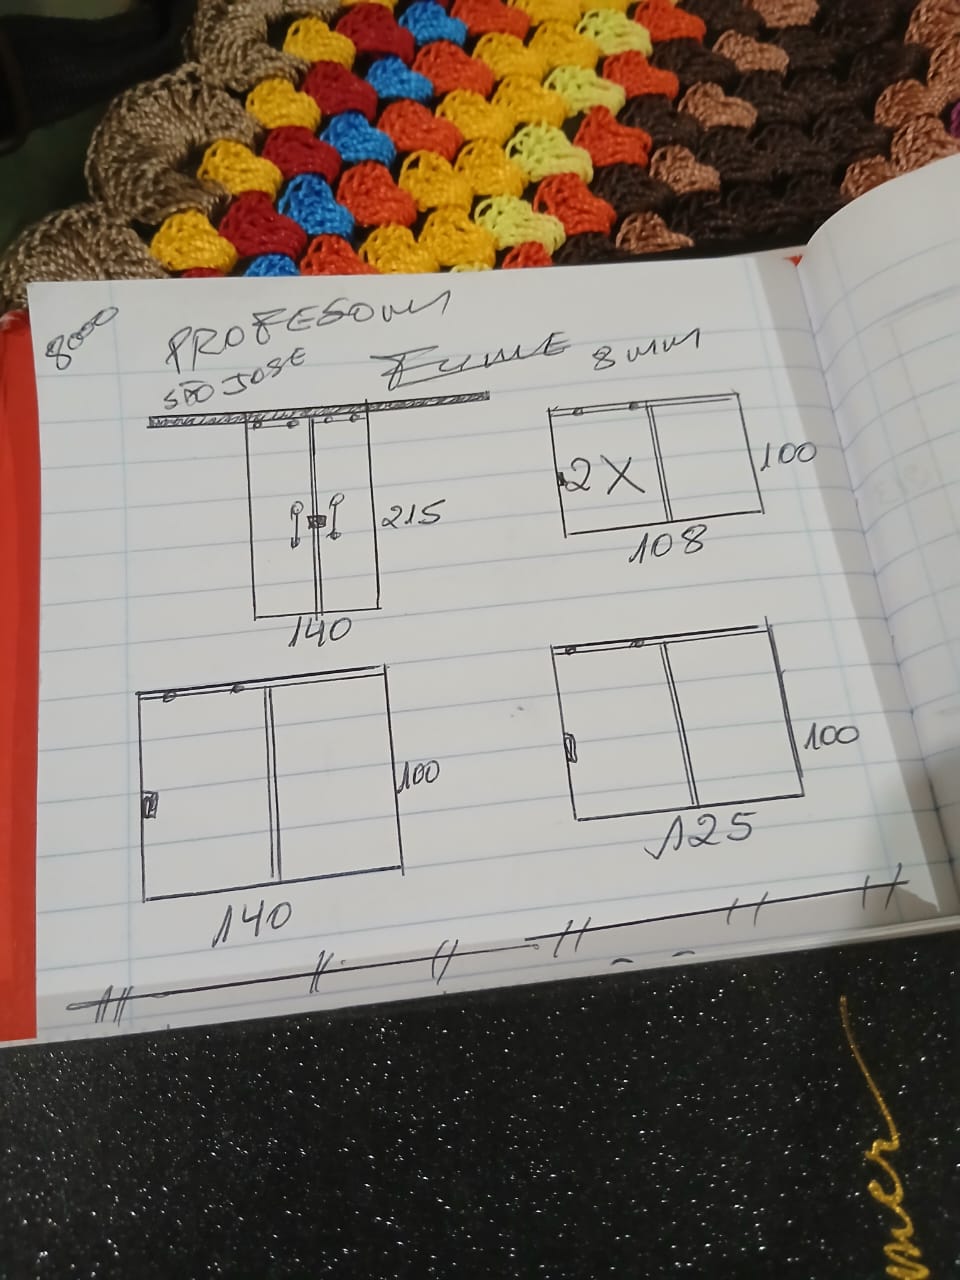 8000
PROFESOUM
SÃO JOSE
FUME 8 mm
215
140
2X
100
108
100
140
100
125
mer